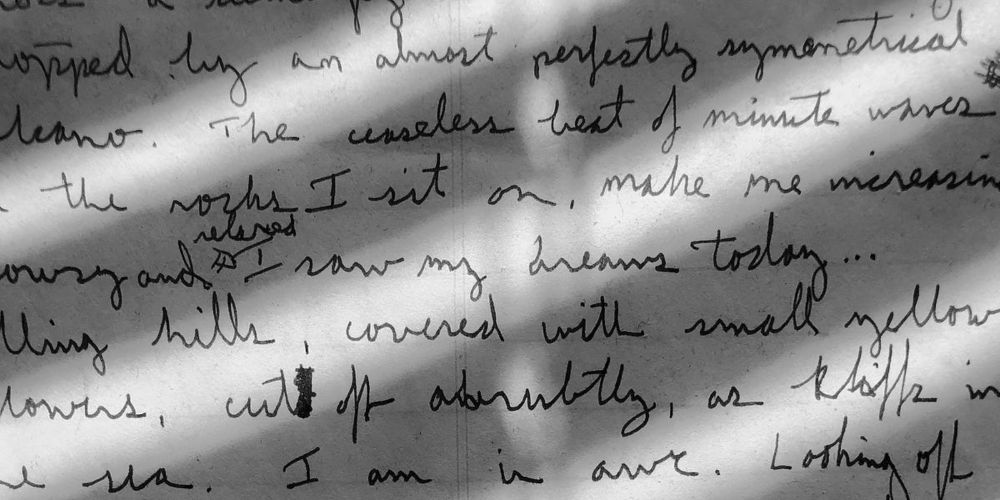 topped by an almost perfectly symmetrical
lcano. The ceaseless beat of minute waves
the rocks I sit on, make me increasin
relaxed
owsy and I saw my dreams today...
lling hills, covered with small yellow
lowers, cut off abrubtly, as kliffs in
e sea. I am in awe. Looking off